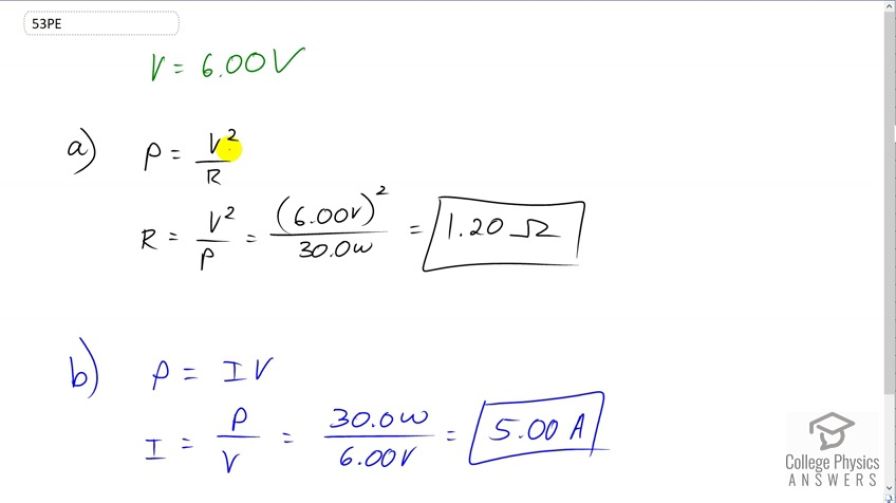 53PE
V = 6.00V
a) P = V²/R
R = V²/P = (6.00V)²/30.0W = 1.20 Ω
b) P = IV
I = P/V = 30.0W/6.00V = 5.00 A
College Physics
ANSWERS